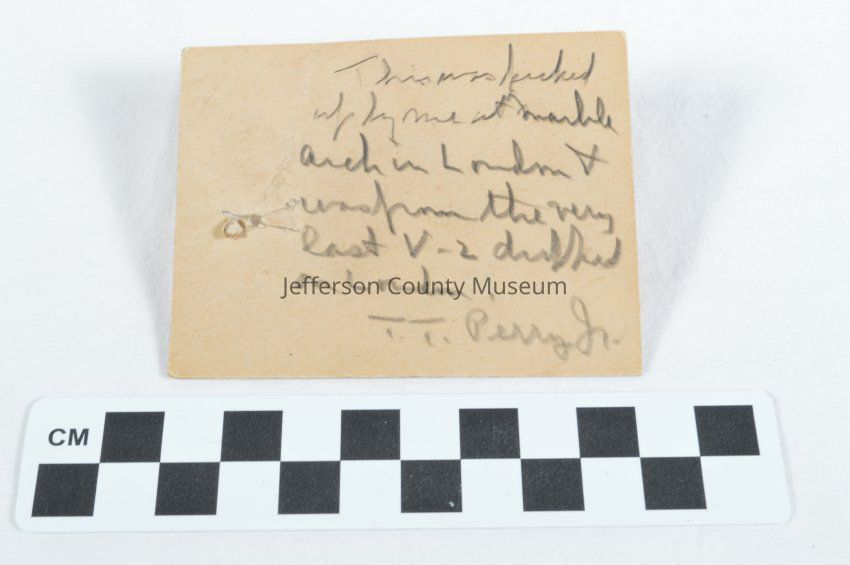 This was picked
up by me at marble
arch in London +
was from the very
last V-2 dropped
on London.
Jefferson County Museum
T.T. Perry Jr.
CM